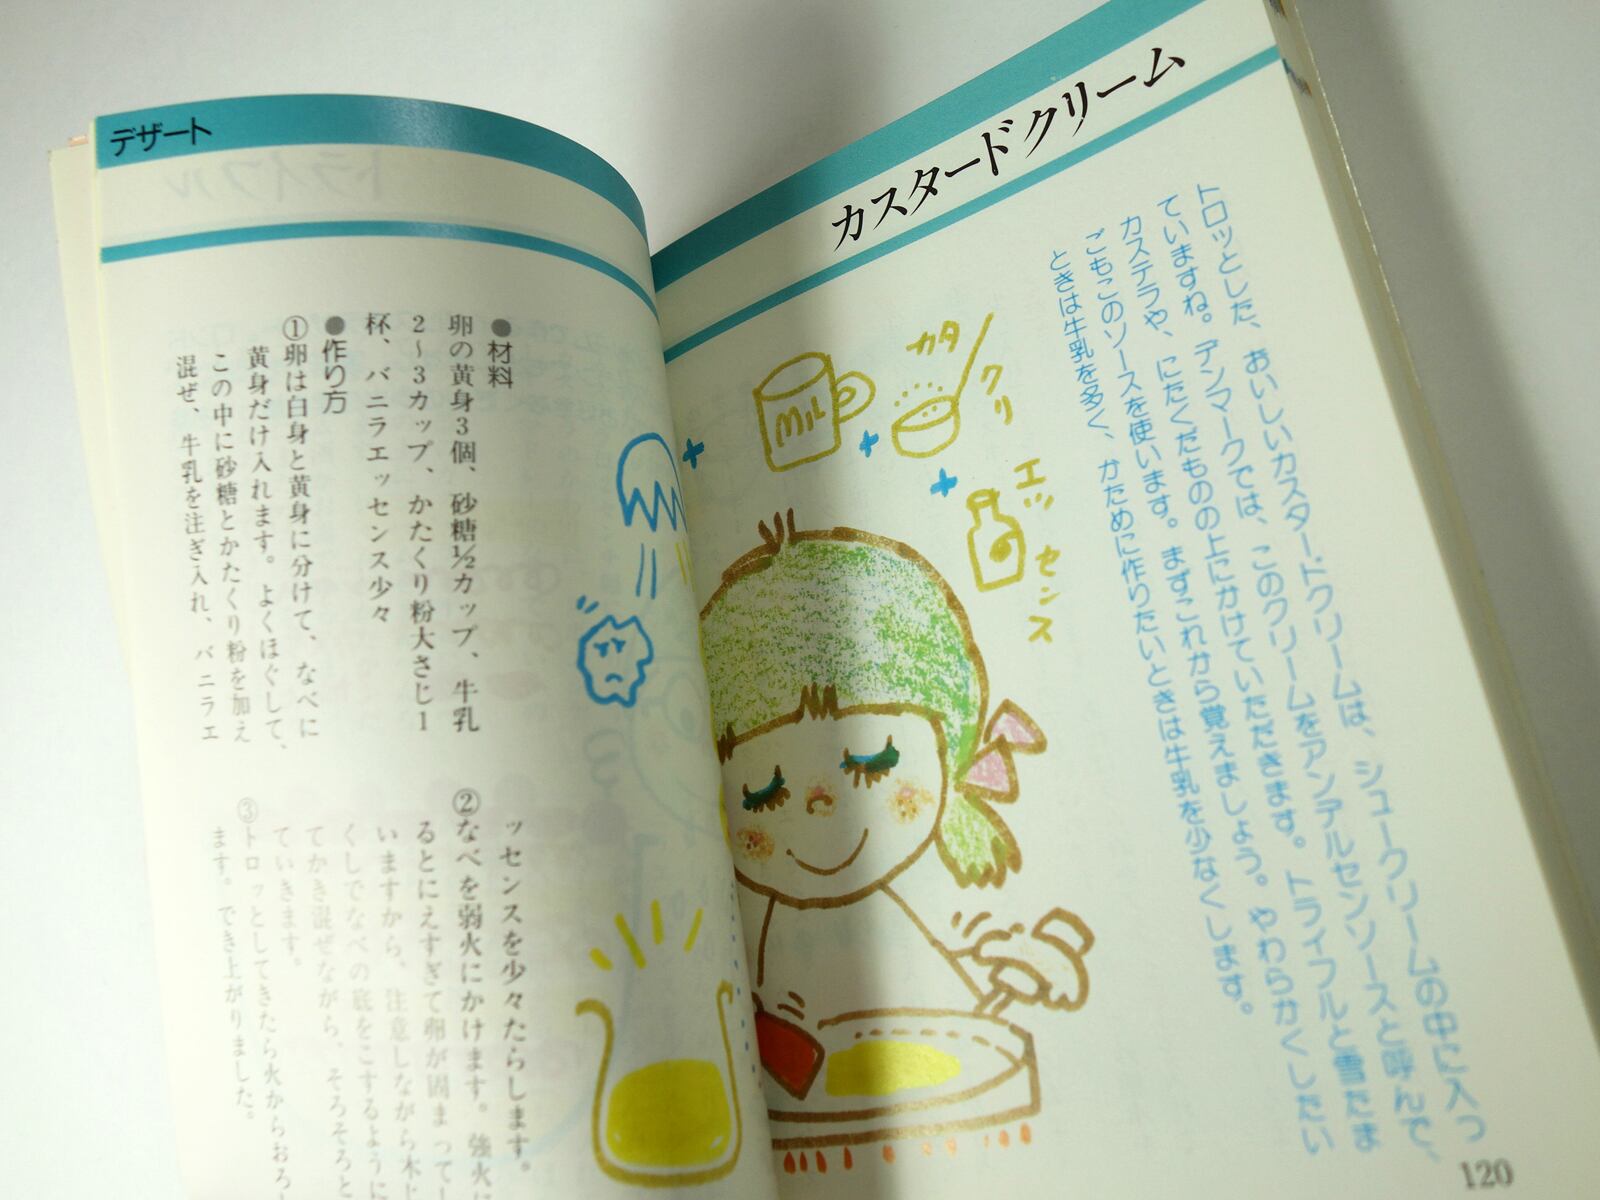 カスタードクリーム
トロッとした、おいしいカスタードクリームは、シュークリームの中に入っ
ていますね。デンマークでは、このクリームをアンデルセンソースと呼んで、
カステラや、にたくだものの上にかけていただきます。トライフルと雪たま
ごもこのソースを使います。まずこれから覚えましょう。やわらかくしたい
ときは牛乳を多く、かために作りたいときは牛乳を少なくします。
カタクリ
MILK
エッセンス
120
デザート
●材料
卵の黄身3個、砂糖½カップ、牛乳
2〜3カップ、かたくり粉大さじ1
杯、バニラエッセンス少々
●作り方
①卵は白身と黄身に分けて、なべに
黄身だけ入れます。よくほぐして、
この中に砂糖とかたくり粉を加え
混ぜ、牛乳を注ぎ入れ、バニラエ
ッセンスを少々たらします。
②なべを弱火にかけます。強火に
るとにえすぎて卵が固まってし
いますから、注意しながら木じ
くしでなべの底をこするように
てかき混ぜながら、そろそろと
ていきます。
③トロッとしてきたら火からおろし
ます。でき上がりました。